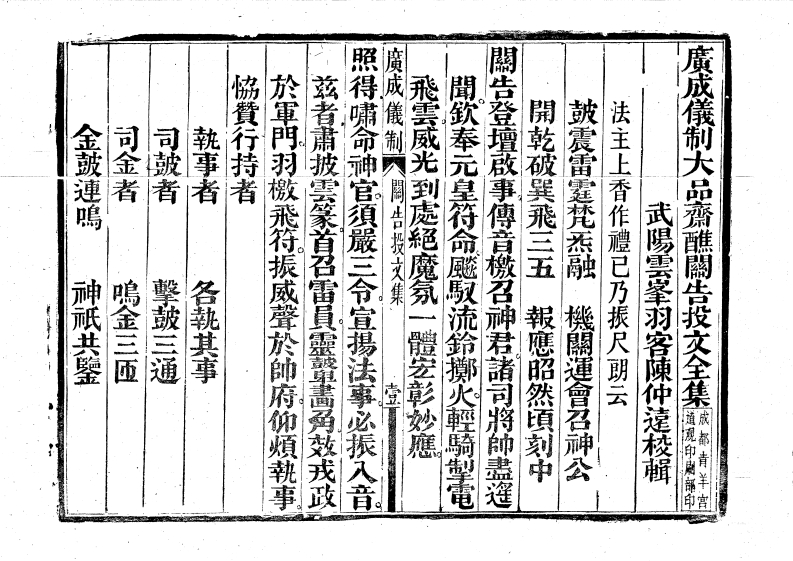 廣成儀制大品齋醮關告投文全集
成都青羊宮
道觀印刷部印
武陽雲峯羽客陳仲遠校輯
法主上香作禮已乃振尺朗云
鼓震雷霆梵炁融　機關運會召神公
開乾破巽飛三五　報應昭然頃刻中
關告登壇啟事傳音檄召神君諸司將帥盡遙
聞。欽奉元皇符命。飈馭流鈴擲火輕騎掣電
飛雲。威光到處絕魔氛。一體宏彰妙應。
廣成儀制　關告投文集　壹
照得嘯命神官。須嚴三令。宣揚法事。必振八音。
茲者肅披雲篆。首召雷員。靈鼉畫角。效戎政
於軍門。羽檄飛符。振威聲於帥府。仰煩執事。
恊贊行持者
執事者　各執其事
司鼓者　擊鼓三通
司金者　鳴金三匝
金鼓連鳴　神祇共鑒